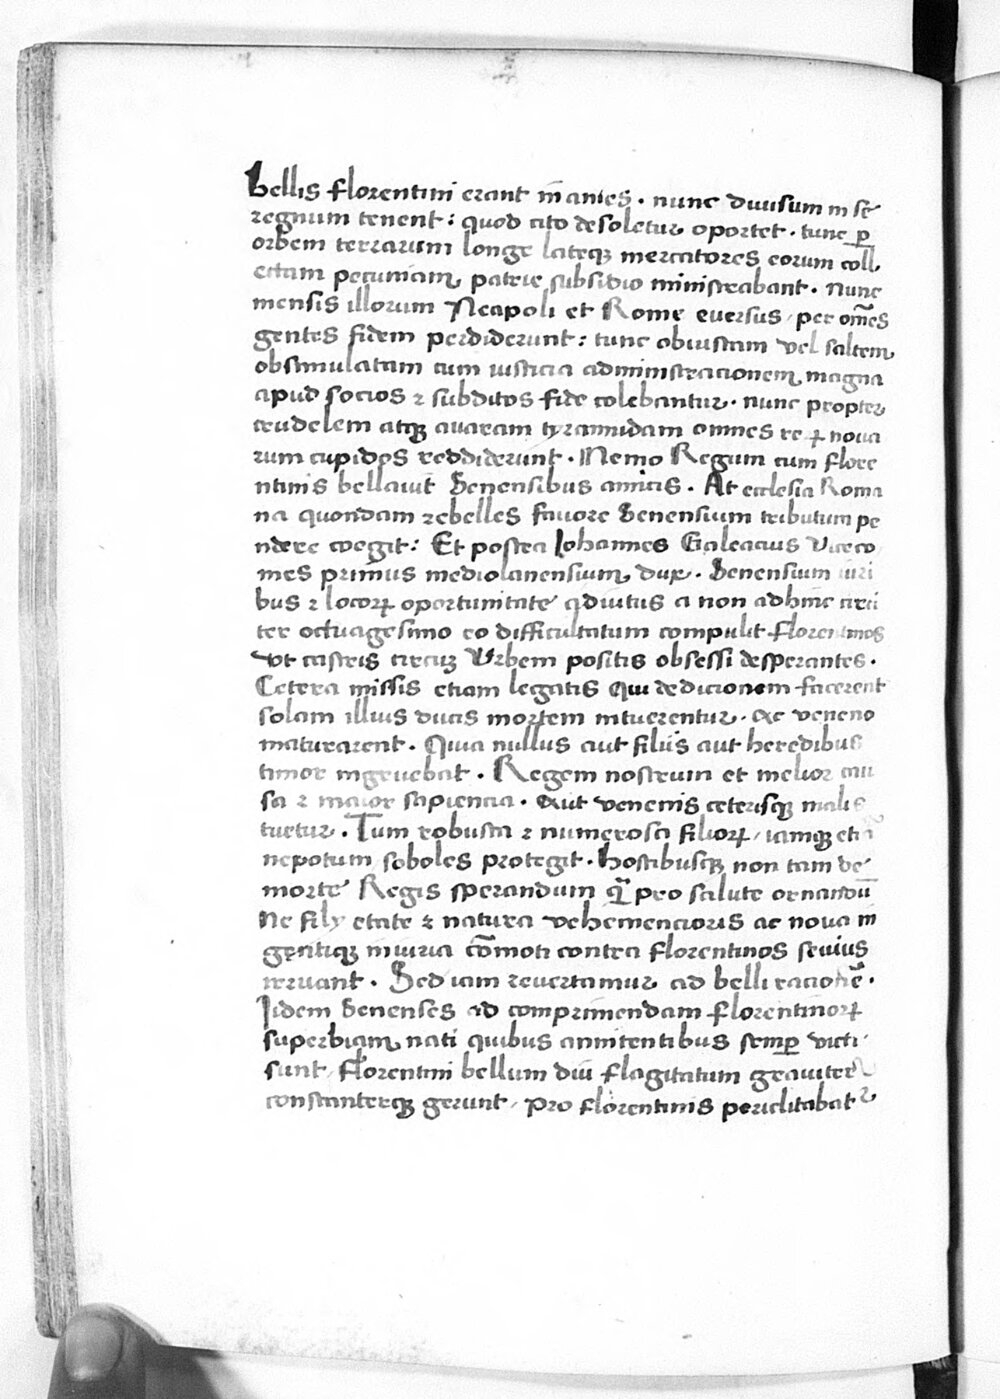 bellis florentini erant inanies . nunc diuisum in sē
regnum tenent : quod cito desoletur oportet . tunc ꝑ
orbem terrarum longe lateqꝫ mercatores eorum coll
ectam pecuniam patrie subsidio ministrabant . nunc
mensis illorum Neapoli et Rome euersus / per om̄es
gentes fidem perdiderunt : tunc ob iustam vel saltem
ob simulatam cum iusticia administracionem magna
apud socios ⁊ subditos fide colebantur . nunc propter
crudelem atqꝫ auaram tyrannidam omnes reꝝ noua
rum cupidos reddiderunt . Nemo Regum cum flore
ntinis bellauit Senensibus amicis . At ecclesia Roma
na quondam rebelles fauore Senensium tributum pe
ndere coegit : Et postea Iohannes Galeacius Viceco
mes primus mediolanensium dux . Senensium iuri
bus ⁊ locoꝝ oportunitate adiutus a non adhinc circi
ter octuagesimo eo difficultatum compulit florentinos
vt castris circuꝫ Vrbem positis obsessi desperantes .
Cetera missis etiam legatis qui dedicionem facerent
solam illius ducis mortem intuerentur . ac veneno
maturarent . Quia nullus aut filius aut heredibus
timor ingruebat . Regem nostrum et melior cau
sa ⁊ maior sapiencia . aut venenis ceterisqꝫ malis
tuetur . Tum robusta ⁊ numerosa filioꝝ / iamqꝫ etiā
nepotum soboles protegit . hostibusqꝫ non tam de
morte Regis sperandum q̄ pro salute ornandū
Ne filij etate ⁊ natura vehemencioris ac noua in
gentiqꝫ iniuria cōmoti contra florentinos seuius
irruant . Sed iam reuertamur ad belli racionē .
Iidem Senenses ad comprimendam florentinoꝝ
superbiam nati quibus annitentibus semꝑ victi
sunt / florentini bellum diu flagitatum grauiter
constanterqꝫ gerunt / pro florentinis periclitabatr